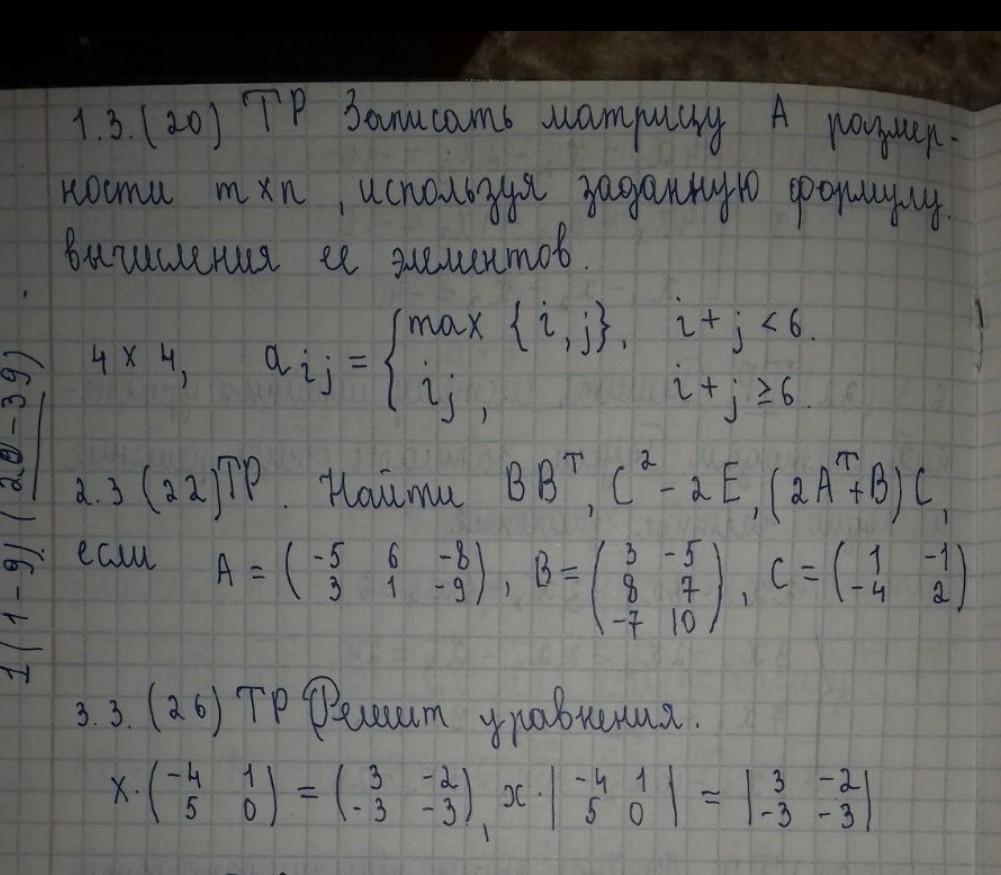 1.3.(20) ТР Записать матрицу А размер-
ности m×n, используя заданную формулу.
вычисления ее элементов.
4 × 4, a_{ij} = { max {i, j}, i + j < 6.
ij, i + j ≥ 6.
2.3 (22) ТР. Найти BB^T, C^2 - 2E, (2A^T + B) C,
если A = (-5 6 -8; 3 1 -9), B = (3 -5; 8 7; -7 10), C = (1 -1; -4 2)
3.3. (26) ТР Решит уравнения.
x · (-4 1; 5 0) = (3 -2; -3 -3), x · |-4 1; 5 0| = |3 -2; -3 -3|
1 (1-9) (20-39)